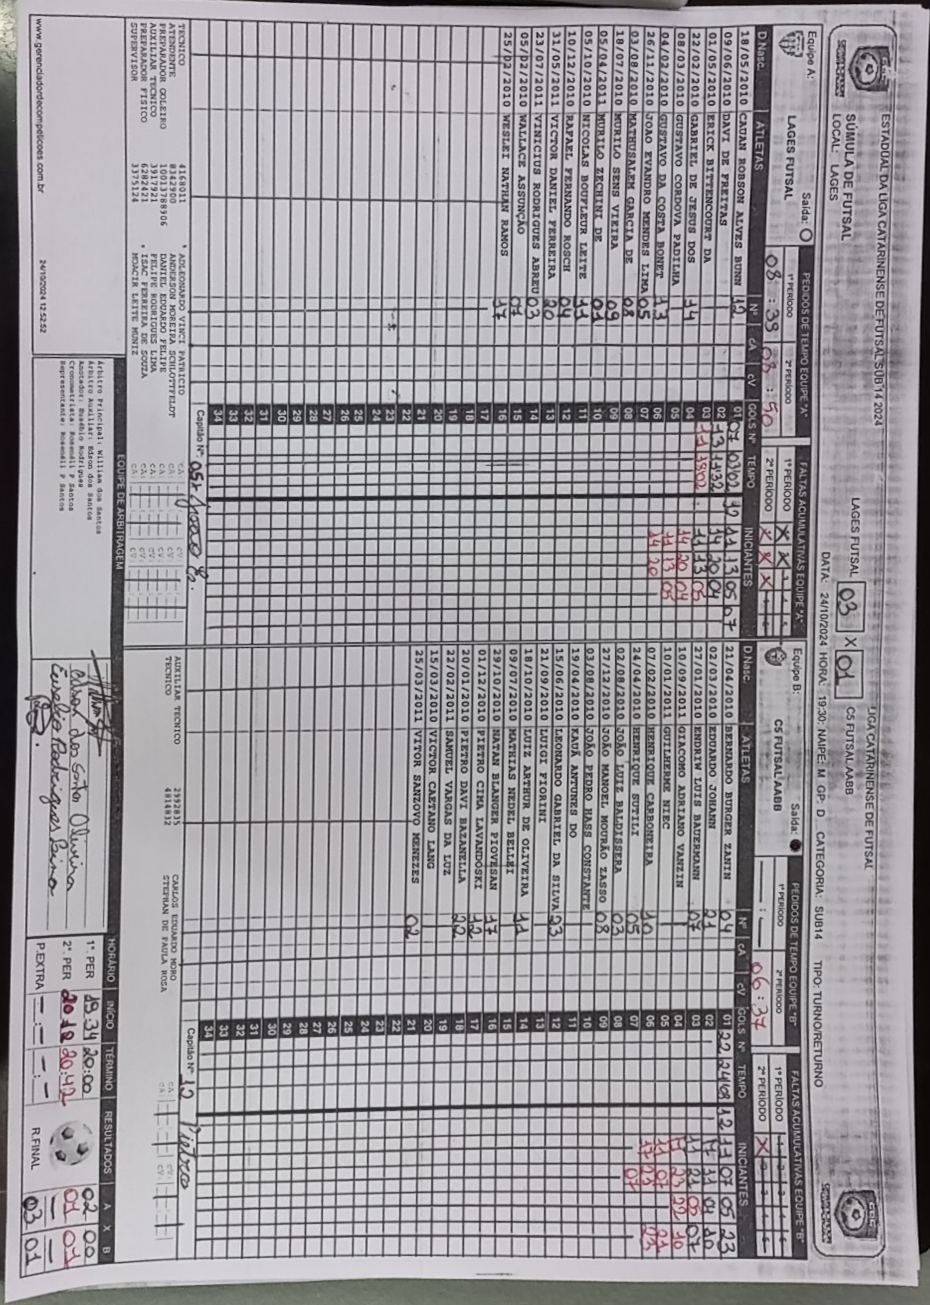 ESTADUAL DA LIGA CATARINENSE DE FUTSAL SUB 14 2024
LIGA CATARINENSE DE FUTSAL
SÚMULA DE FUTSAL
LAGES FUTSAL 03 X 01 C5 FUTSAL AABB
LOCAL: LAGES
DATA: 24/10/2024 HORA: 19:30 NAIPE: M GP: D CATEGORIA: SUB14 TIPO: TURNO/RETURNO
Equipe A:
LAGES FUTSAL
Saída:
PEDIDOS DE TEMPO EQUIPE "A"
1º PERÍODO 2º PERÍODO
08:39 08:50
FALTAS ACUMULATIVAS EQUIPE "A"
1º PERÍODO X X
2º PERÍODO X X X
D.Nasc. ATLETAS Nº CA CV GOLS Nº TEMPO INICIANTES
18/05/2010 CAUAN ROBSON ALVES BUNN 12 01 07 03:02 12 11 13 05 07
09/06/2010 DAVI DE FREITAS 02 13 11:32 14 20 04
01/05/2010 ERICK BITTENCOURT DA 03 11 13 05
22/02/2011 GABRIEL DE JESUS DOS 14 04 14 20 04
08/03/2010 GUSTAVO CORDOVA PADILHA 05 11 13 05
04/02/2010 GUSTAVO DA COSTA BONET 13 06 14 20
26/11/2010 JOAO EVANDRO MENDES LIMA 05 07
03/08/2010 MATHUSALEM GARCIA DE 08 08
18/07/2010 MURILO SENS VIEIRA 09 09
05/04/2011 MURILO ZECHINI DE 01 10
05/10/2011 NICOLAS BOUFLEUR LEITE 11 11
10/12/2010 RAFAEL FERNANDO ROSCH 04 12
31/05/2011 VICTOR DANIEL FERREIRA 20 13
23/07/2011 VINICIUS RODRIGUES ABREU 03 14
05/02/2010 WALLACE ASSUNÇÃO 07 15
25/02/2010 WESLEI NATHAN RAMOS 17 16
17
18
19
20
21
22
23
24
25
26
27
28
29
30
31
32
33
34
Capitão Nº: 05
TECNICO 4168011 ADLEONARDO VINCI PATRICIO
ATENDENTE 8342900 ANDERSON MOREIRA SCHLOTTFELDT
PREPARADOR GOLEIRO 10013788906 DANIEL EDUARDO FELIPE
AUXILIAR TECNICO 3917921 FELIPE RODRIGUES LIMA
PREPARADOR FISICO 6282421 ISAC FERREIRA DE SOUZA
SUPERVISOR 3375124 MOACIR LEITE MUNIZ
Equipe B:
C5 FUTSAL AABB
Saída:
PEDIDOS DE TEMPO EQUIPE "B"
1º PERÍODO 2º PERÍODO
06:37
FALTAS ACUMULATIVAS EQUIPE "B"
1º PERÍODO
2º PERÍODO X
D.Nasc. ATLETAS Nº CA CV GOLS Nº TEMPO INICIANTES
21/04/2010 BERNARDO BURGER ZANIN 04 01 22 12 11 07 05 23
02/03/2010 EDUARDO JOHANN 21 02 17 11 04 10
27/01/2010 ENDRIW LUIS BAUERMANN 07 03
10/09/2011 GIACOMO ADRIANO VANZIN 04
10/02/2011 GUILHERME NIEC 05
07/02/2010 HENRIQUE CARBONEIRA 10 06
24/04/2010 HENRIQUE SUTILI 05 07
02/08/2010 JOÃO LUIZ BALDISSERA 03 08
27/12/2010 JOÃO MANOEL MOURÃO ZASSO 08 09
03/08/2010 JOÃO PEDRO HASS CONSTANTE 10
19/04/2010 KAUÃ ANTUNES DO 11
15/06/2011 LEONARDO GABRIEL DA SILVA 23 12
21/09/2011 LUIGI FIORINI 13
18/07/2010 LUIZ ARTHUR DE OLIVEIRA 11 14
09/07/2010 MATHIAS NEDEL BELLEI 15
29/10/2010 NATAN BLANGER PIOVESAN 17 16
01/12/2010 PIETRO CIMA LAVANDOSKI 12 17
20/01/2010 PIETRO DAVI BAZANELLA 22 18
22/02/2011 SAMUEL VARGAS DA LUZ 19
15/03/2010 VICTOR CAETANO LANG 20
25/03/2011 VITOR SANZOVO MENEZES 02 21
22
23
24
25
26
27
28
29
30
31
32
33
34
Capitão Nº 12 Pietro
AUXILIAR TECNICO 2992835 CARLOS EDUARDO MORO
TECNICO 4814832 STEPHAN DE PAULA ROSA
EQUIPE DE ARBITRAGEM
Árbitro Principal: William dos Santos
Árbitro Auxiliar: Edson dos Santos
Anotador: Eusébio Rodrigues
Cronometrista: Rosenéli P Santos
Representante: Rosenéli P Santos
Edson dos Santos Oliveira
HORÁRIO INÍCIO TÉRMINO RESULTADOS A X B
1º. PER 19:34 20:00 02 00
2º. PER 20:12 20:42 01 01
P.EXTRA --:-- --:-- — —
R.FINAL 03 01
www.gerenciadordecompeticoes.com.br
24/10/2024 12:52:52